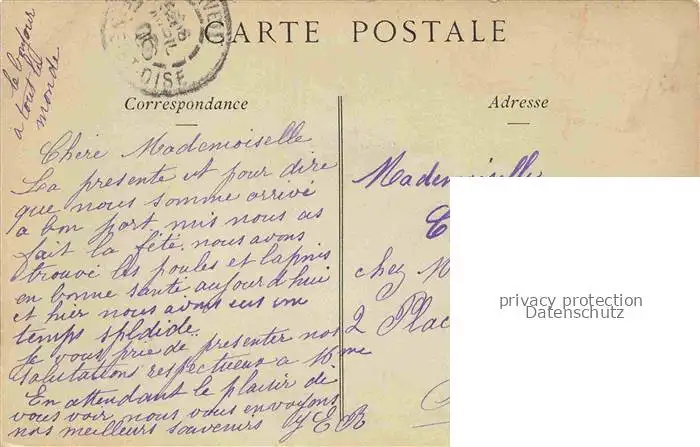 CARTE POSTALE
OISE
le bonjour
a tout le
monde
Correspondance
Adresse
Chère Mademoiselle
La presente et pour dire
que nous somme arrivé
a bon port. mis nous as
fait la fête. nous avons
trouvé les poules et lapins
en bonne santé aujourd'hui
et hier nous avons eus un
temps spldide.
Je vous prie de presenter nos
salutations respectueux a Mme
En attendant le plaisir de
vous voir nous vous envoyons
nos meilleurs souvenirs Y E R
Mademoiselle
chez M
2 Plac
privacy protection
Datenschutz